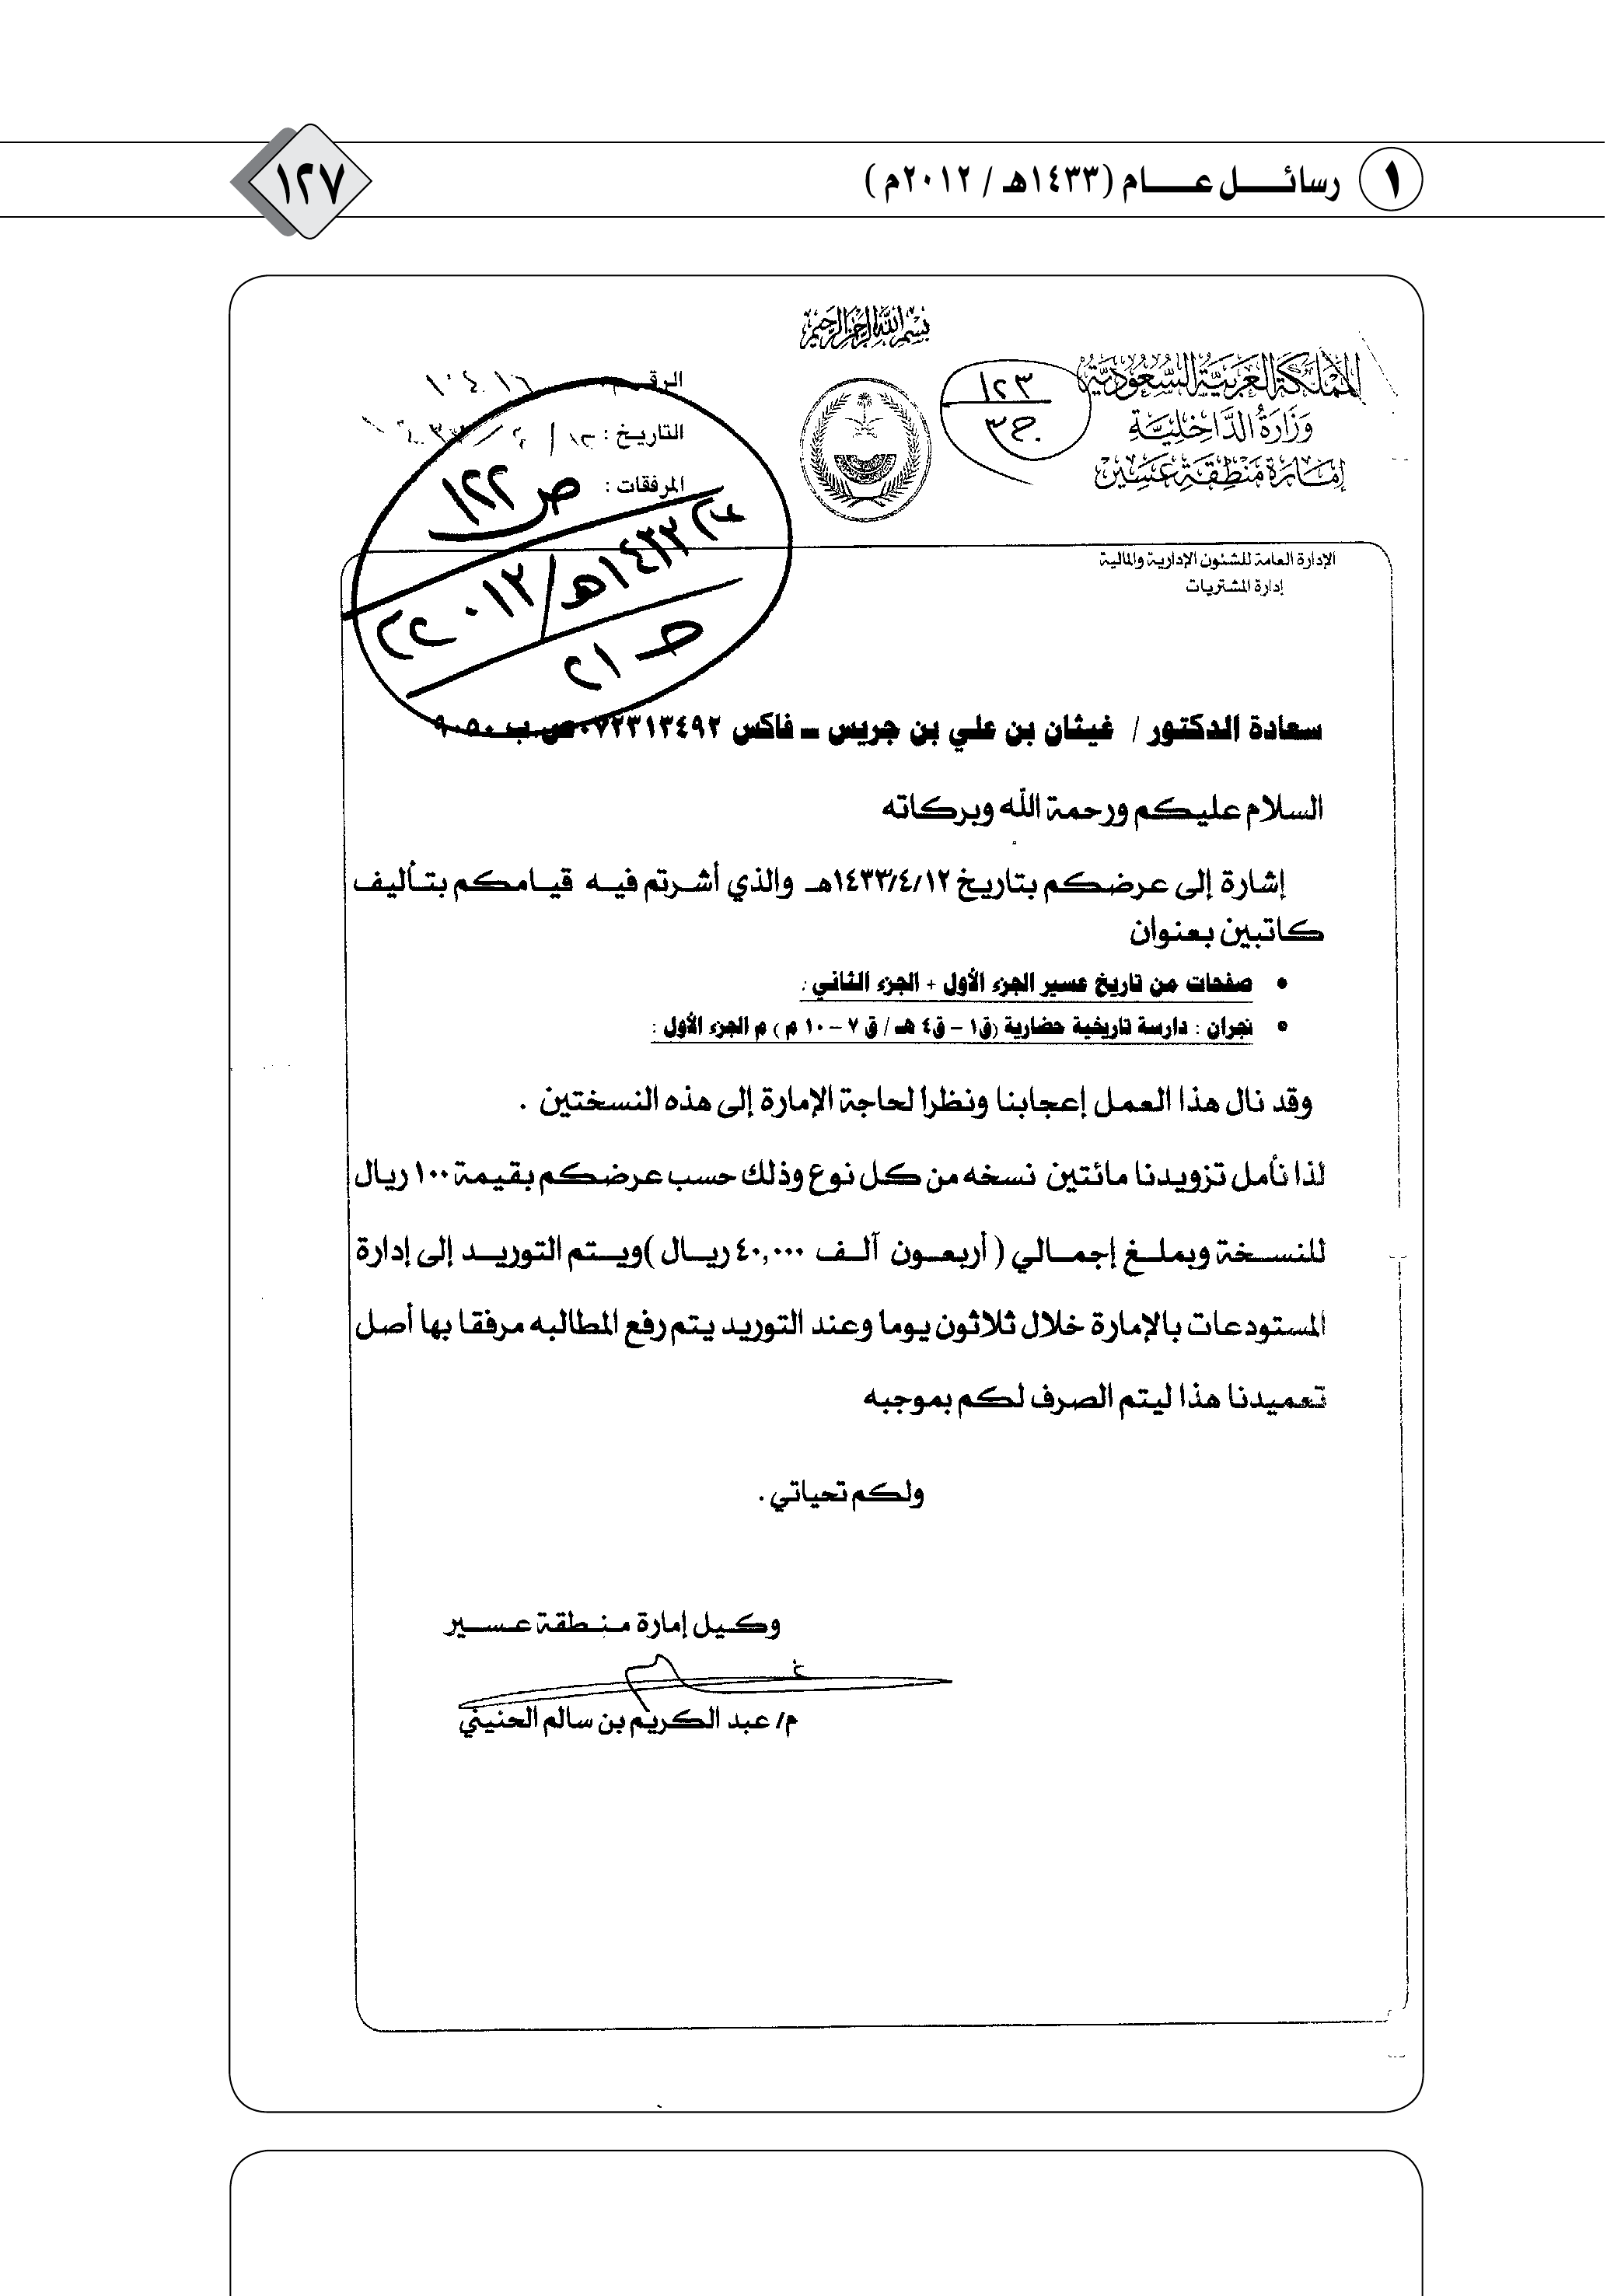 ١ رسائل عام (١٤٣٣هـ / ٢٠١٢م)
١٢٧
بسم الله الرحمن الرحيم
المملكة العربية السعودية
وزارة الداخلية
إمارة منطقة عسير
١٢٣
ج٣
الرقم
التاريخ :
المرفقات :
ص ١٢٢
عام ١٤٣٣هـ/٢٠١٢م
ح ٢١
الإدارة العامة للشئون الإدارية والمالية
إدارة المشتريات
سعادة الدكتور / غيثان بن علي بن جريس ــ فاكس ٠٧٢٣١٣٤٩٢ص.ب ٩٠٥٠
السلام عليكم ورحمة الله وبركاته
إشارة إلى عرضكم بتاريخ ١٤٣٣/٤/١٢هـ والذي أشرتم فيه قيامكم بتأليف
كاتبين بعنوان
• صفحات من تاريخ عسير الجزء الأول + الجزء الثاني :
• نجران : دارسة تاريخية حضارية (ق١ – ق٤ هـ / ق ٧ – ١٠ م ) م الجزء الأول :
وقد نال هذا العمل إعجابنا ونظرا لحاجة الإمارة إلى هذه النسختين .
لذا نأمل تزويدنا مائتين نسخه من كل نوع وذلك حسب عرضكم بقيمة ١٠٠ ريال
للنسخة وبملغ إجمالي ( أربعون آلف ٤٠,٠٠٠ ريال )ويتم التوريد إلى إدارة
المستودعات بالإمارة خلال ثلاثون يوما وعند التوريد يتم رفع المطالبه مرفقا بها أصل
تعميدنا هذا ليتم الصرف لكم بموجبه
ولكم تحياتي .
وكيل إمارة منطقة عسير
م/ عبد الكريم بن سالم الحنيني